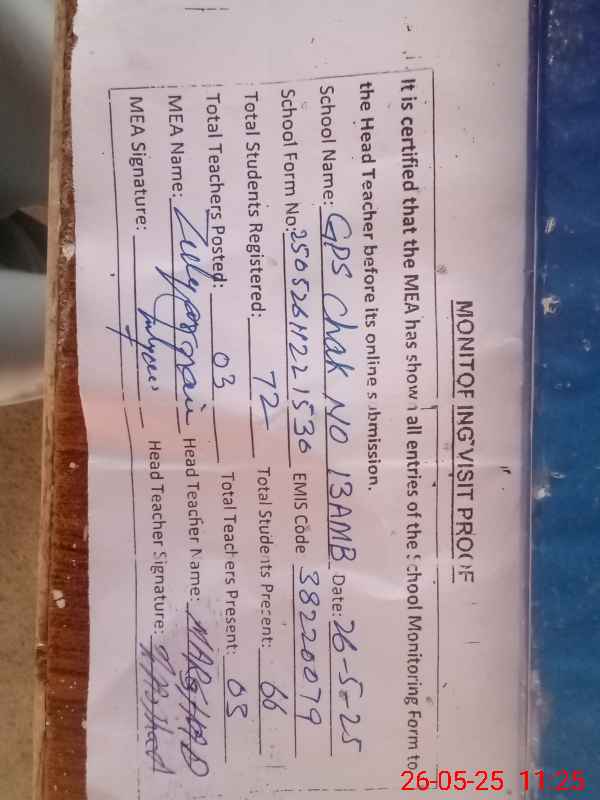 MONITORING VISIT PROOF
It is certified that the MEA has shown all entries of the School Monitoring Form to
the Head Teacher before its online submission.
School Name: GPS Chak NO 13AMB Date: 26-5-25
School Form No: EMIS Code 38220079
Total Students Registered: 72 Total Students Present: 66
Total Teachers Posted: 03 Total Teachers Present: 03
MEA Name: Head Teacher Name: NARSHAD
MEA Signature: Head Teacher Signature:
26-05-25 11:25